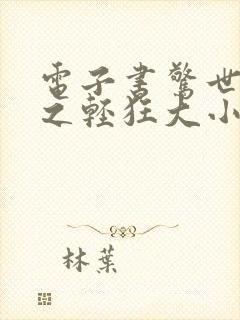 電子書驚世
之輕狂大小
林葉